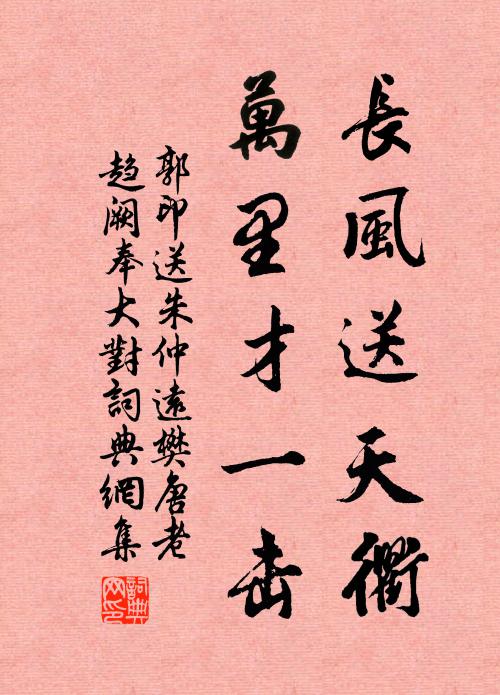 長風送天衢
萬里才一击
郭印送朱仲遠樊唐老
趋阙奉大對詞典網集
詞典
网印